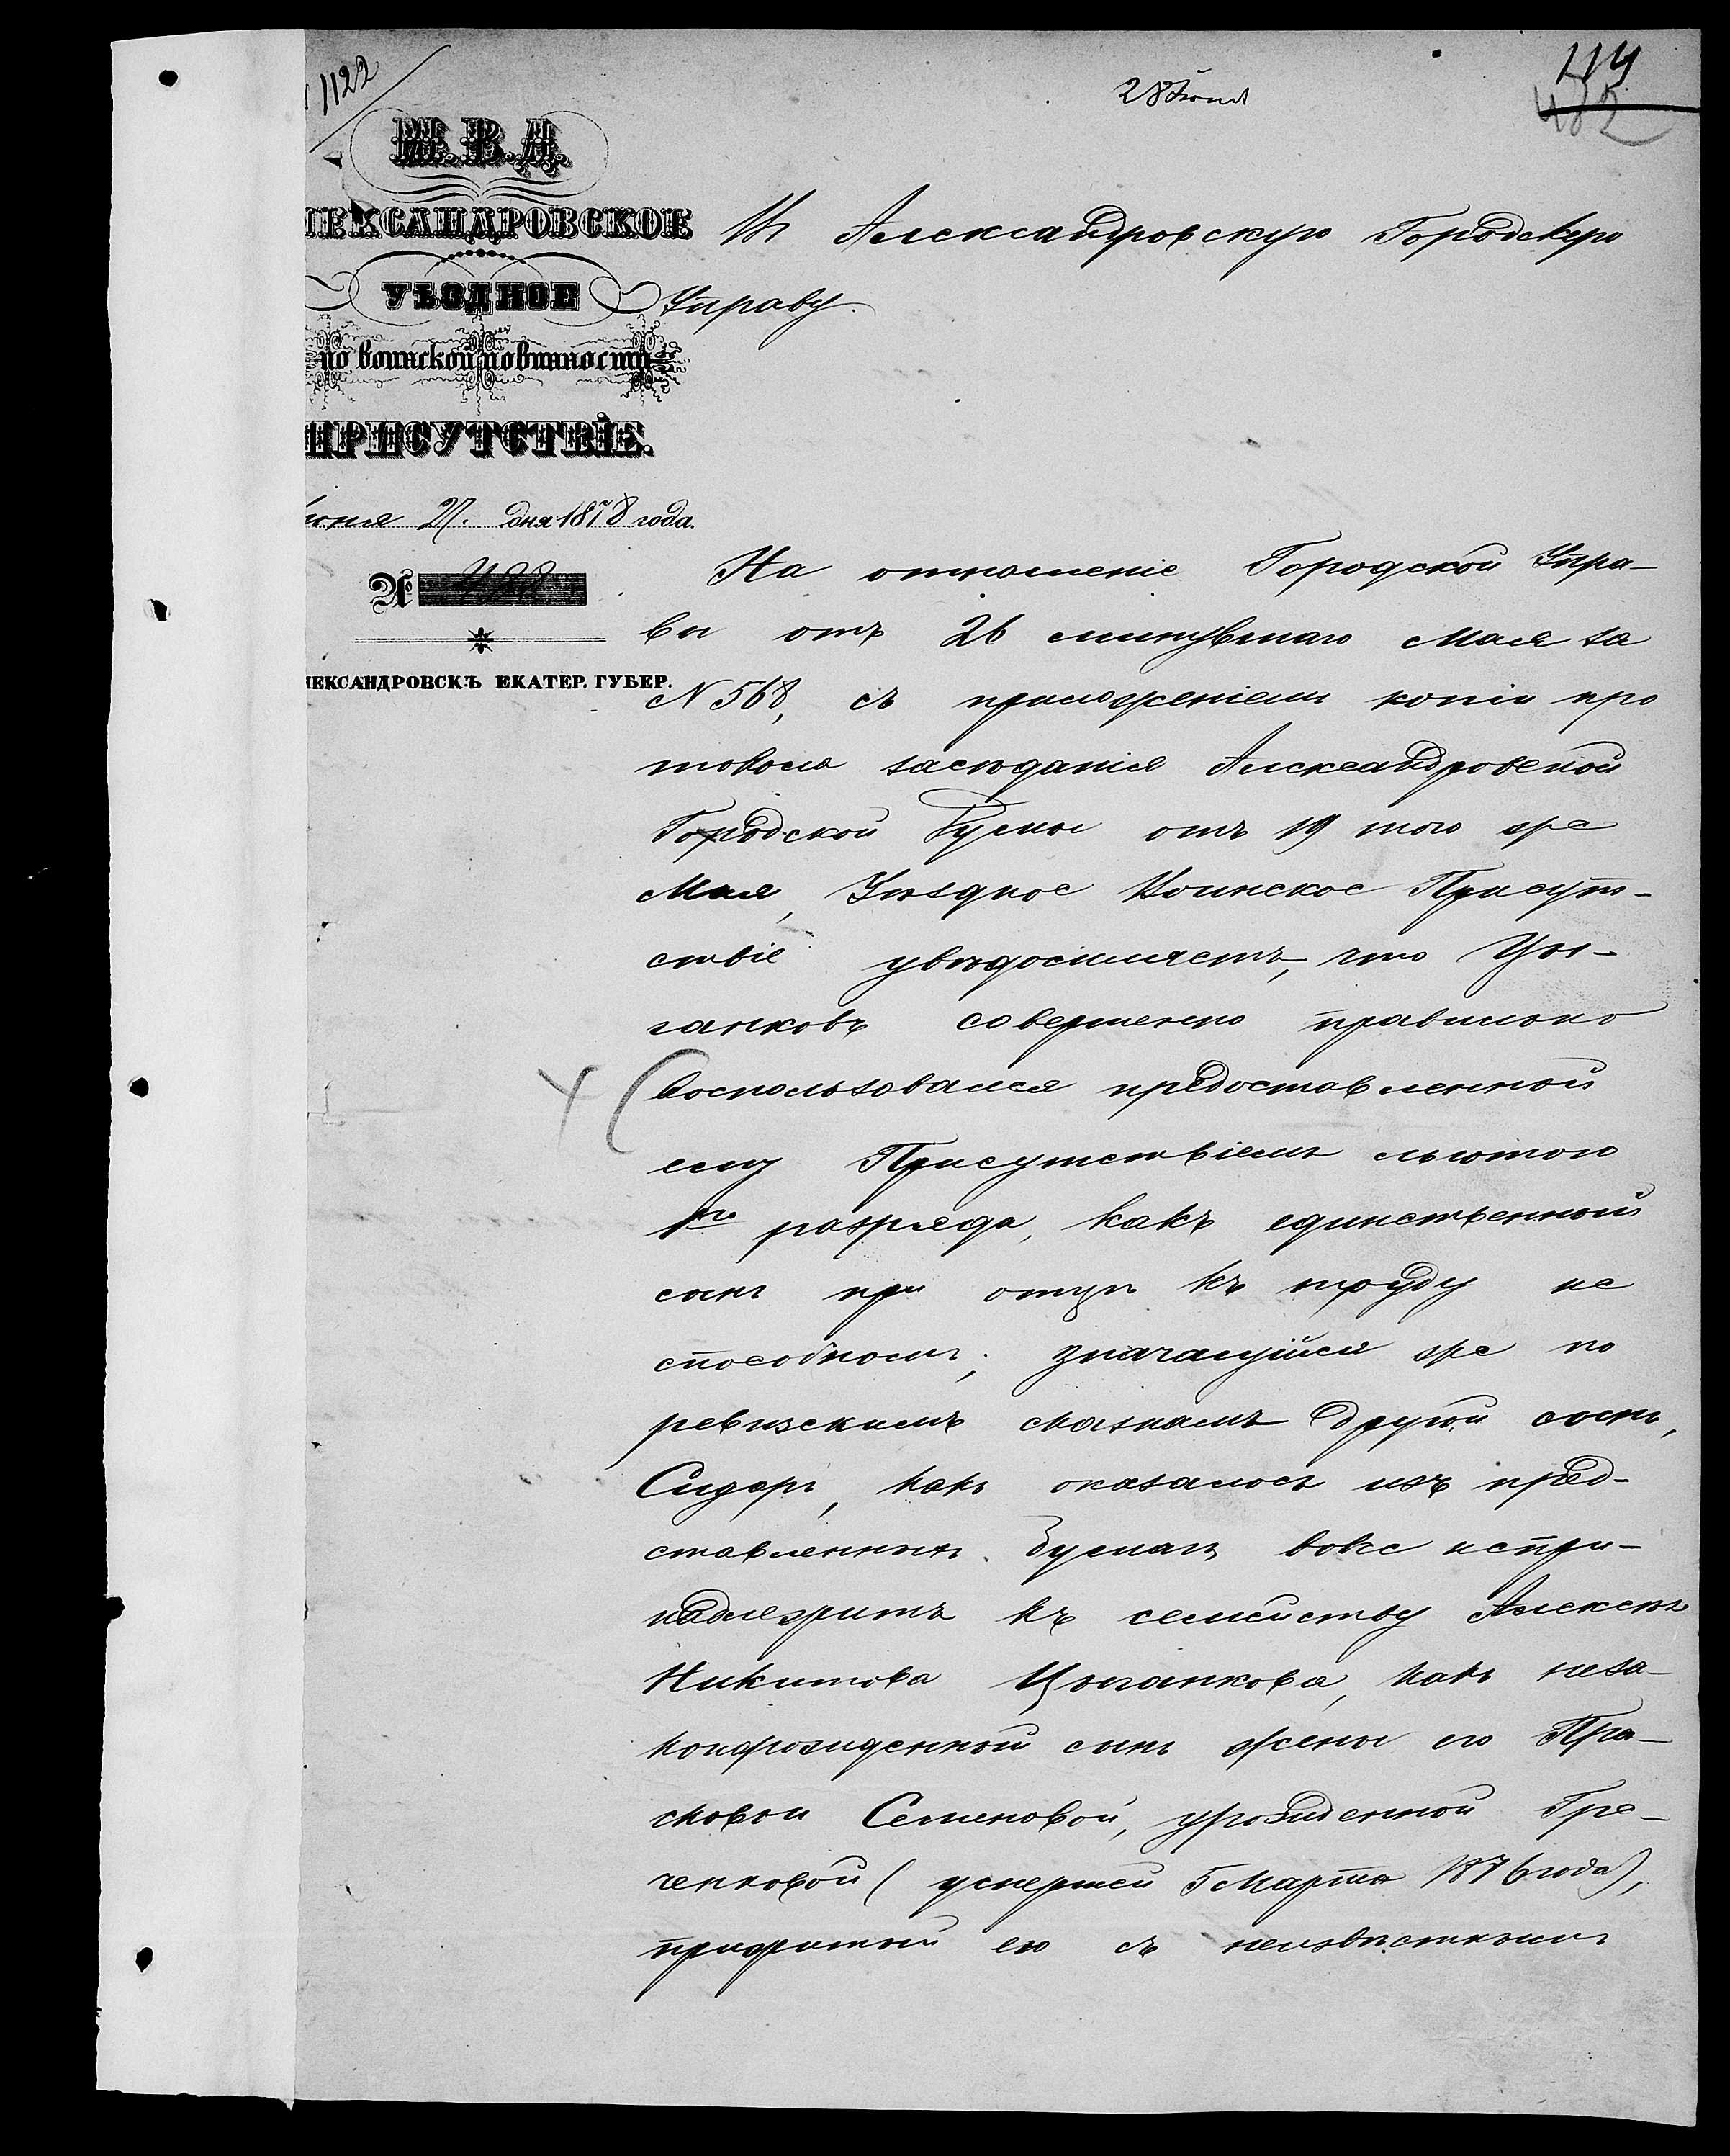 1122
28 Іюня
119
482
М. В. Д.
ЛЕКСАНДРОВСКОЕ
УѢЗДНОЕ
по воинской повинности
ПРИСУТСТВІЕ.
Іюня 27. дня 1878 года.
№ 488
ЛЕКСАНДРОВСКЪ ЕКАТЕР. ГУБЕР.
Въ Александровскую Городскую
Управу.
На отношеніе Городской Упра-
вы отъ 26 минувшаго Мая за
N 568, съ приложеніемъ копіи про
токола засѣданія Александровской
Городской Думы отъ 19 того же
Мая, Уѣздное Воинское Присут-
ствіе увѣдомляетъ, что Цы-
ганковъ совершенно правильно
воспользовался предоставленной
ему Присутствіемъ льготою
1го разряда, какъ единственной
сынъ при отцѣ къ труду не
способномъ; значащійся же по
ревизскимъ сказкамъ другой сынъ,
Сидоръ, какъ оказалось изъ пред-
ставленныхъ бумагъ вовсе непри-
надлежитъ къ семейству Алексѣя
Никитова Цыганкова, какъ неза-
коннорожденной сынъ жены его Пра-
сковьи Семеновой, урожденной Гре-
ченковой (умершей 5 Марта 1876 года),
прижитой ею съ неизвѣстнымъ